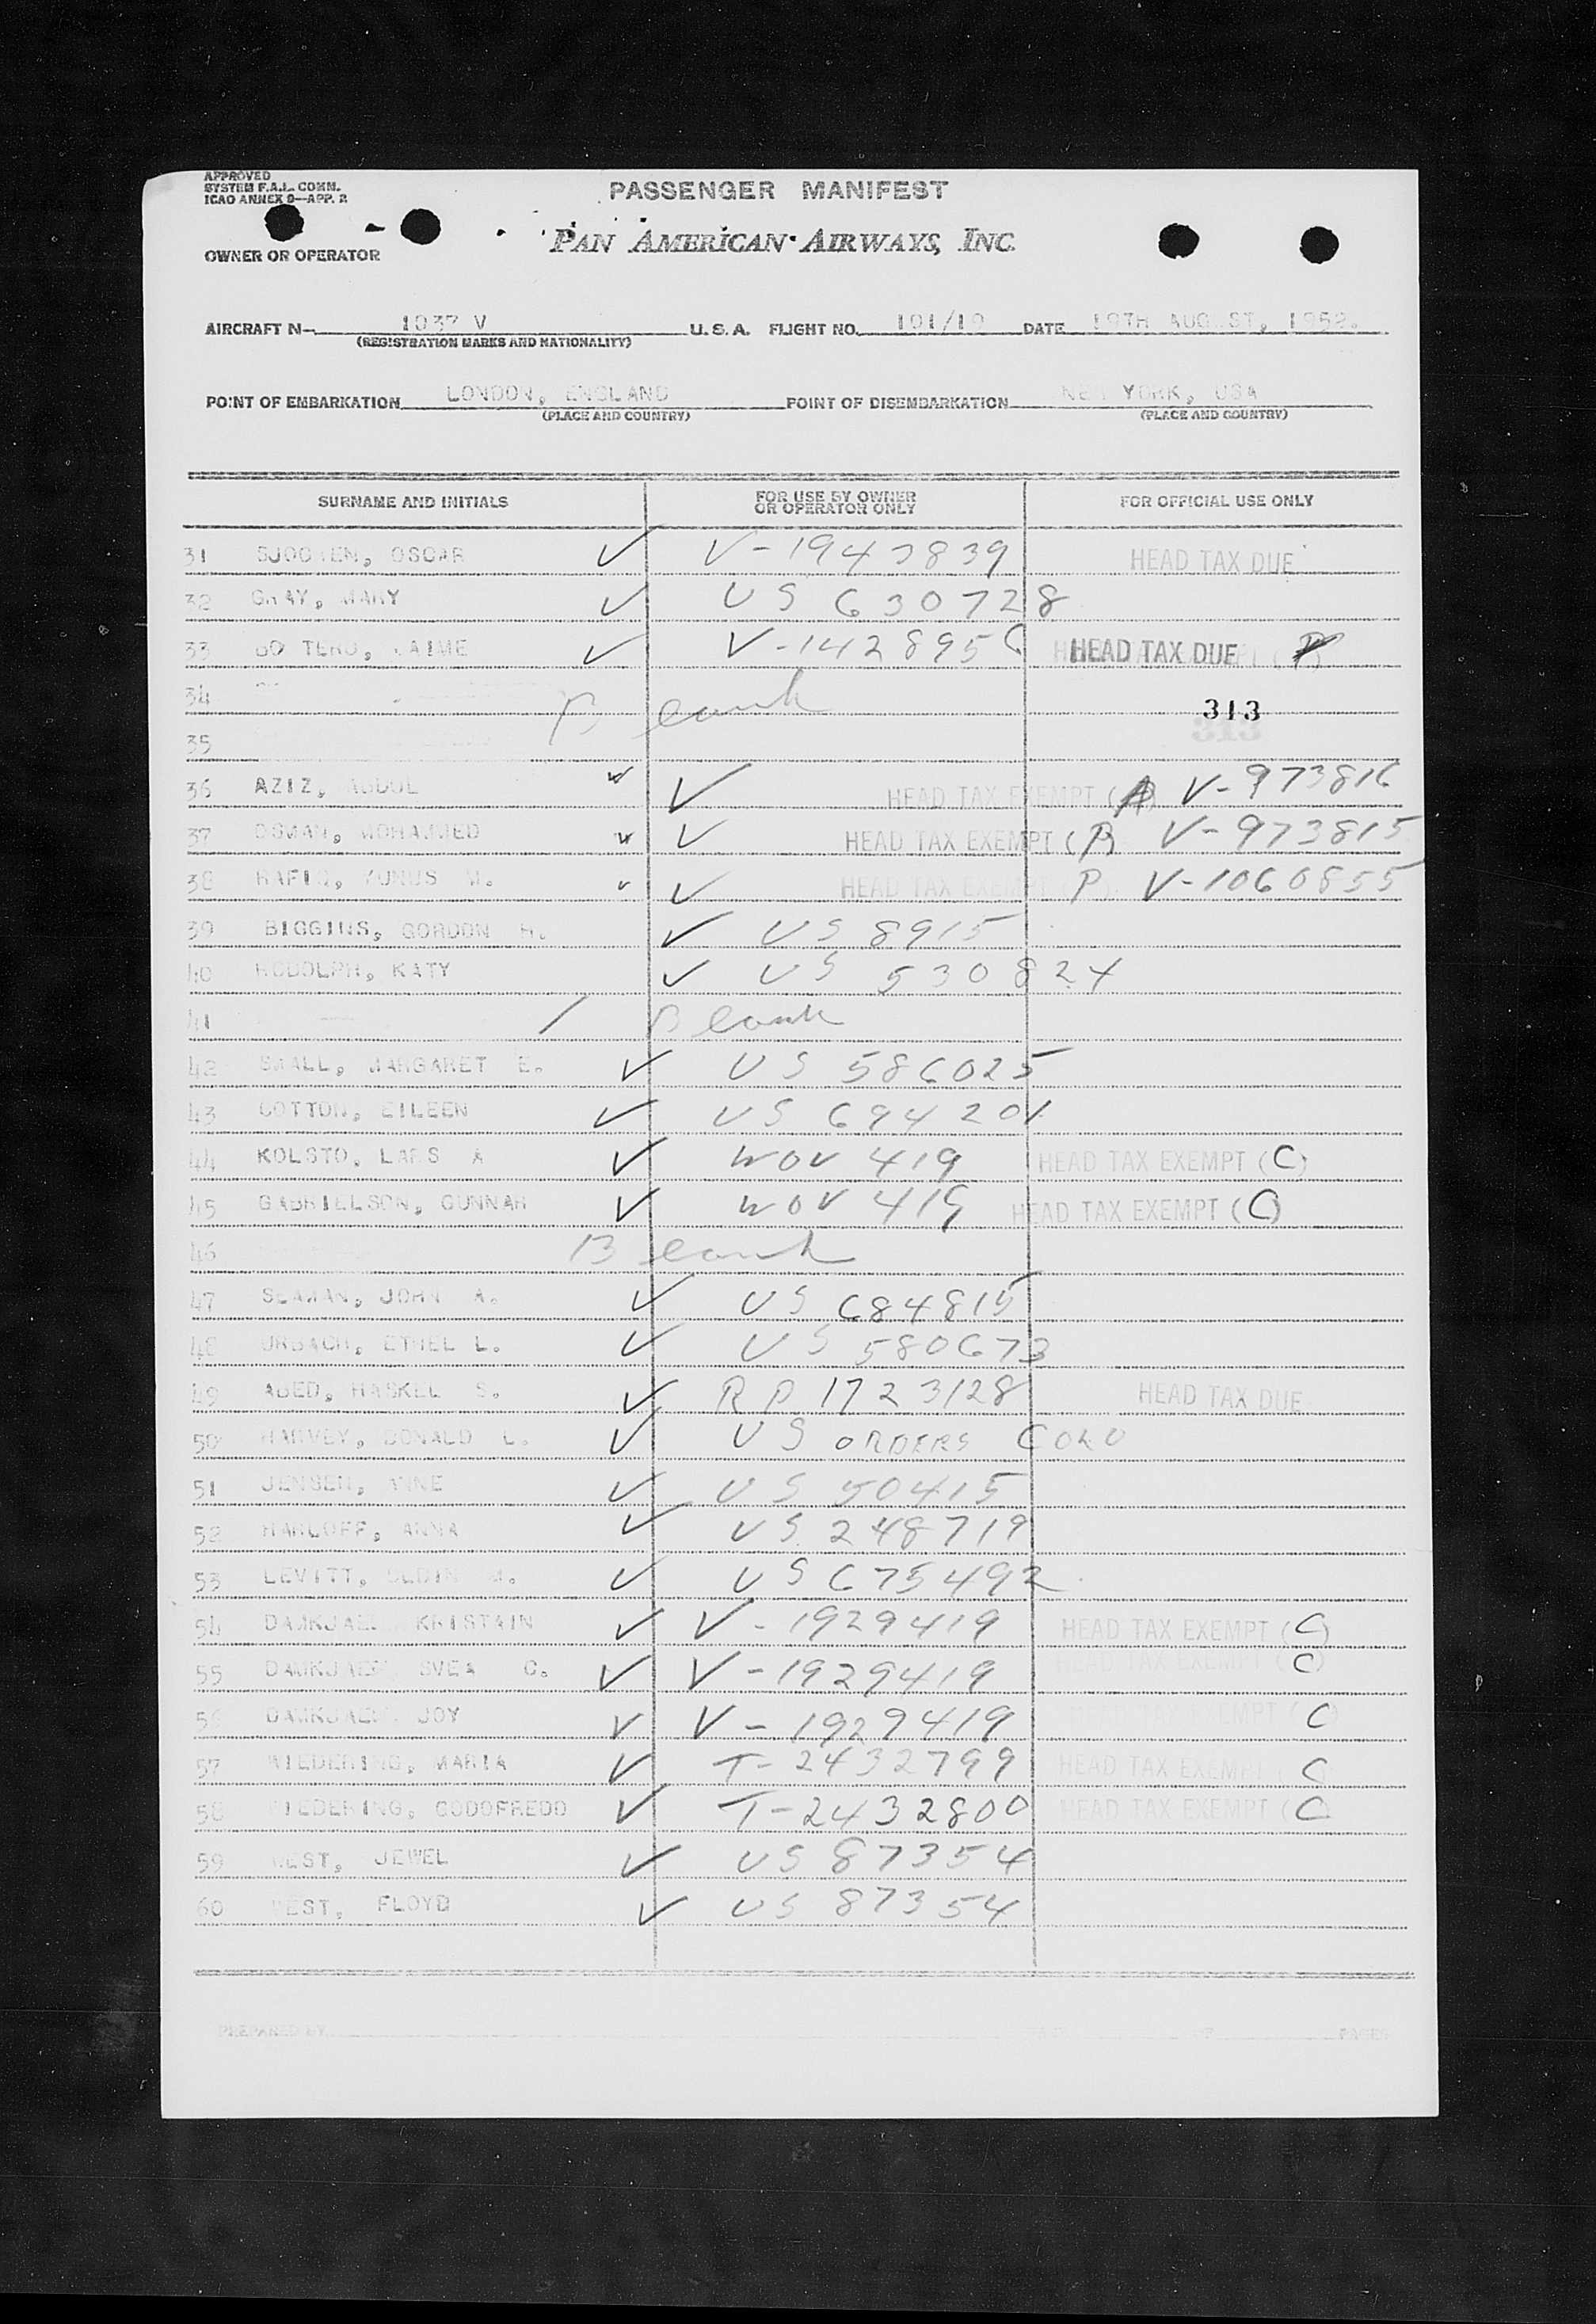 APPROVED
SYSTEM F.A.L. COMM.
ICAO ANNEX 9—APP. 2
PASSENGER MANIFEST
OWNER OR OPERATOR
PAN AMERICAN AIRWAYS, INC.
AIRCRAFT N— 1037 V U.S.A. FLIGHT NO. 101/19 DATE 19TH AUGUST, 1952.
(REGISTRATION MARKS AND NATIONALITY)
POINT OF EMBARKATION LONDON, ENGLAND POINT OF DISEMBARKATION NEW YORK, USA
(PLACE AND COUNTRY) (PLACE AND COUNTRY)
SURNAME AND INITIALS FOR USE BY OWNER OR OPERATOR ONLY FOR OFFICIAL USE ONLY
31 OSCAR ✓ V-1943839 HEAD TAX DUE
32 GRAY, MARY ✓ US 630728
33 JAIME ✓ V-1428956 HEAD TAX DUE
34 Blank 313
35
36 AZIZ, ABDUL ✓ HEAD TAX EXEMPT V-973816
37 OSMAN, MOHAMMED ✓ HEAD TAX EXEMPT (P) V-973815
38 RAFIQ, YUNUS M. ✓ HEAD TAX EXEMPT (P) V-1060855
39 BIGGINS, GORDON H. ✓ US 8915
40 RODOLPH, KATY ✓ US 530824
41 Blank
42 SMALL, MARGARET E. ✓ US 586025
43 COTTON, EILEEN ✓ US 694201
44 KOLSTO, LARS A ✓ WOV 419 HEAD TAX EXEMPT (C)
45 GABRIELSON, GUNNAR ✓ WOV 419 HEAD TAX EXEMPT (C)
46 Blank
47 SEAMAN, JOHN A. ✓ US 684815
48 URBACH, ETHEL L. ✓ US 580673
49 ABED, HASKEL S. ✓ RP 1723128 HEAD TAX DUE
50 HARVEY, DONALD L. ✓ US ORDERS
51 JENSEN, ANNE ✓ US 50415
52 HARLOFF, ANNA ✓ US 248719
53 LEVITT, M. ✓ US 675492
54 DAMKJAER KRISTAIN ✓ V-1929419 HEAD TAX EXEMPT (C)
55 DAMKJAER SVEA C. ✓ V-1929419 HEAD TAX EXEMPT (C)
56 DAMKJAER JOY ✓ V-1929419 HEAD TAX EXEMPT C
57 WIEDERING, MARIA ✓ T-2432799 HEAD TAX EXEMPT C
58 WIEDERING, GODOFREDO ✓ T-2432800 HEAD TAX EXEMPT (C
59 WEST, JEWEL ✓ US 87354
60 WEST, FLOYD ✓ US 87354
PREPARED BY PAGES